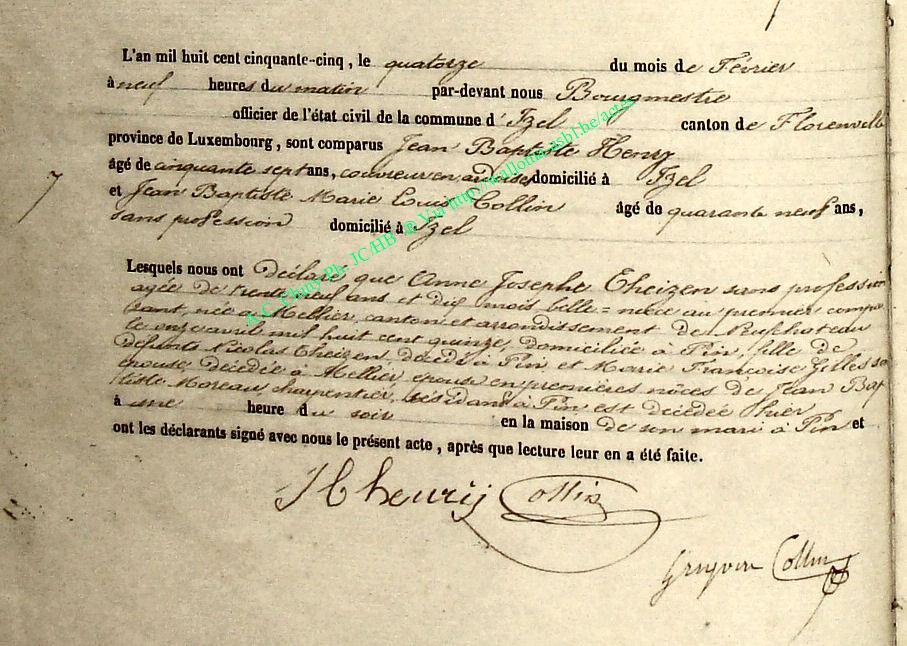 L'an mil huit cent cinquante-cinq, le quatorze du mois de Février
à neuf heures du matin par-devant nous Bourgmestre
officier de l'état civil de la commune d'Izel canton de Florenville
province de Luxembourg, sont comparus Jean Baptiste Henry
âgé de cinquante sept ans, couvreur en ardoises domicilié à Izel
7
et Jean Baptiste Marie Louis Collin âgé de quarante neuf ans,
sans profession domicilié à Izel
Lesquels nous ont déclaré que Anne Josephe Theizen sans profession
agée de trente neuf ans et dix mois belle = nièce au premier compa
rant, née à Mellier, canton et arrondissement de Neufchateau
le onze avril mil huit cent quinze, domiciliée à Pin, fille de
défunts Nicolas Theizen décédé à Pin, et Marie Françoise Gilles sa
épouse, décédée à Mellier, épouse en premières nôces de Jean Bap
tiste Moreau, charpentier, résidant à Pin est décédée hier
à une heure du soir en la maison de son mari à Pin et
ont les déclarants signé avec nous le présent acte, après que lecture leur en a été faite.
JBhenry Collin
Collin